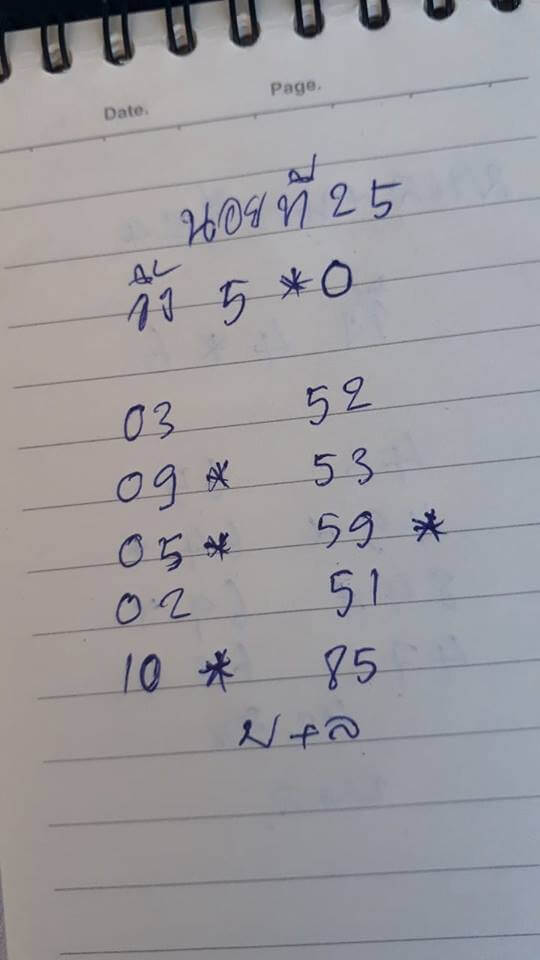 Date. Page.
นอยที่ 25
วิ่ง 5 *0
03 52
09 * 53
05 * 59 *
02 51
10 * 85
บ+ล